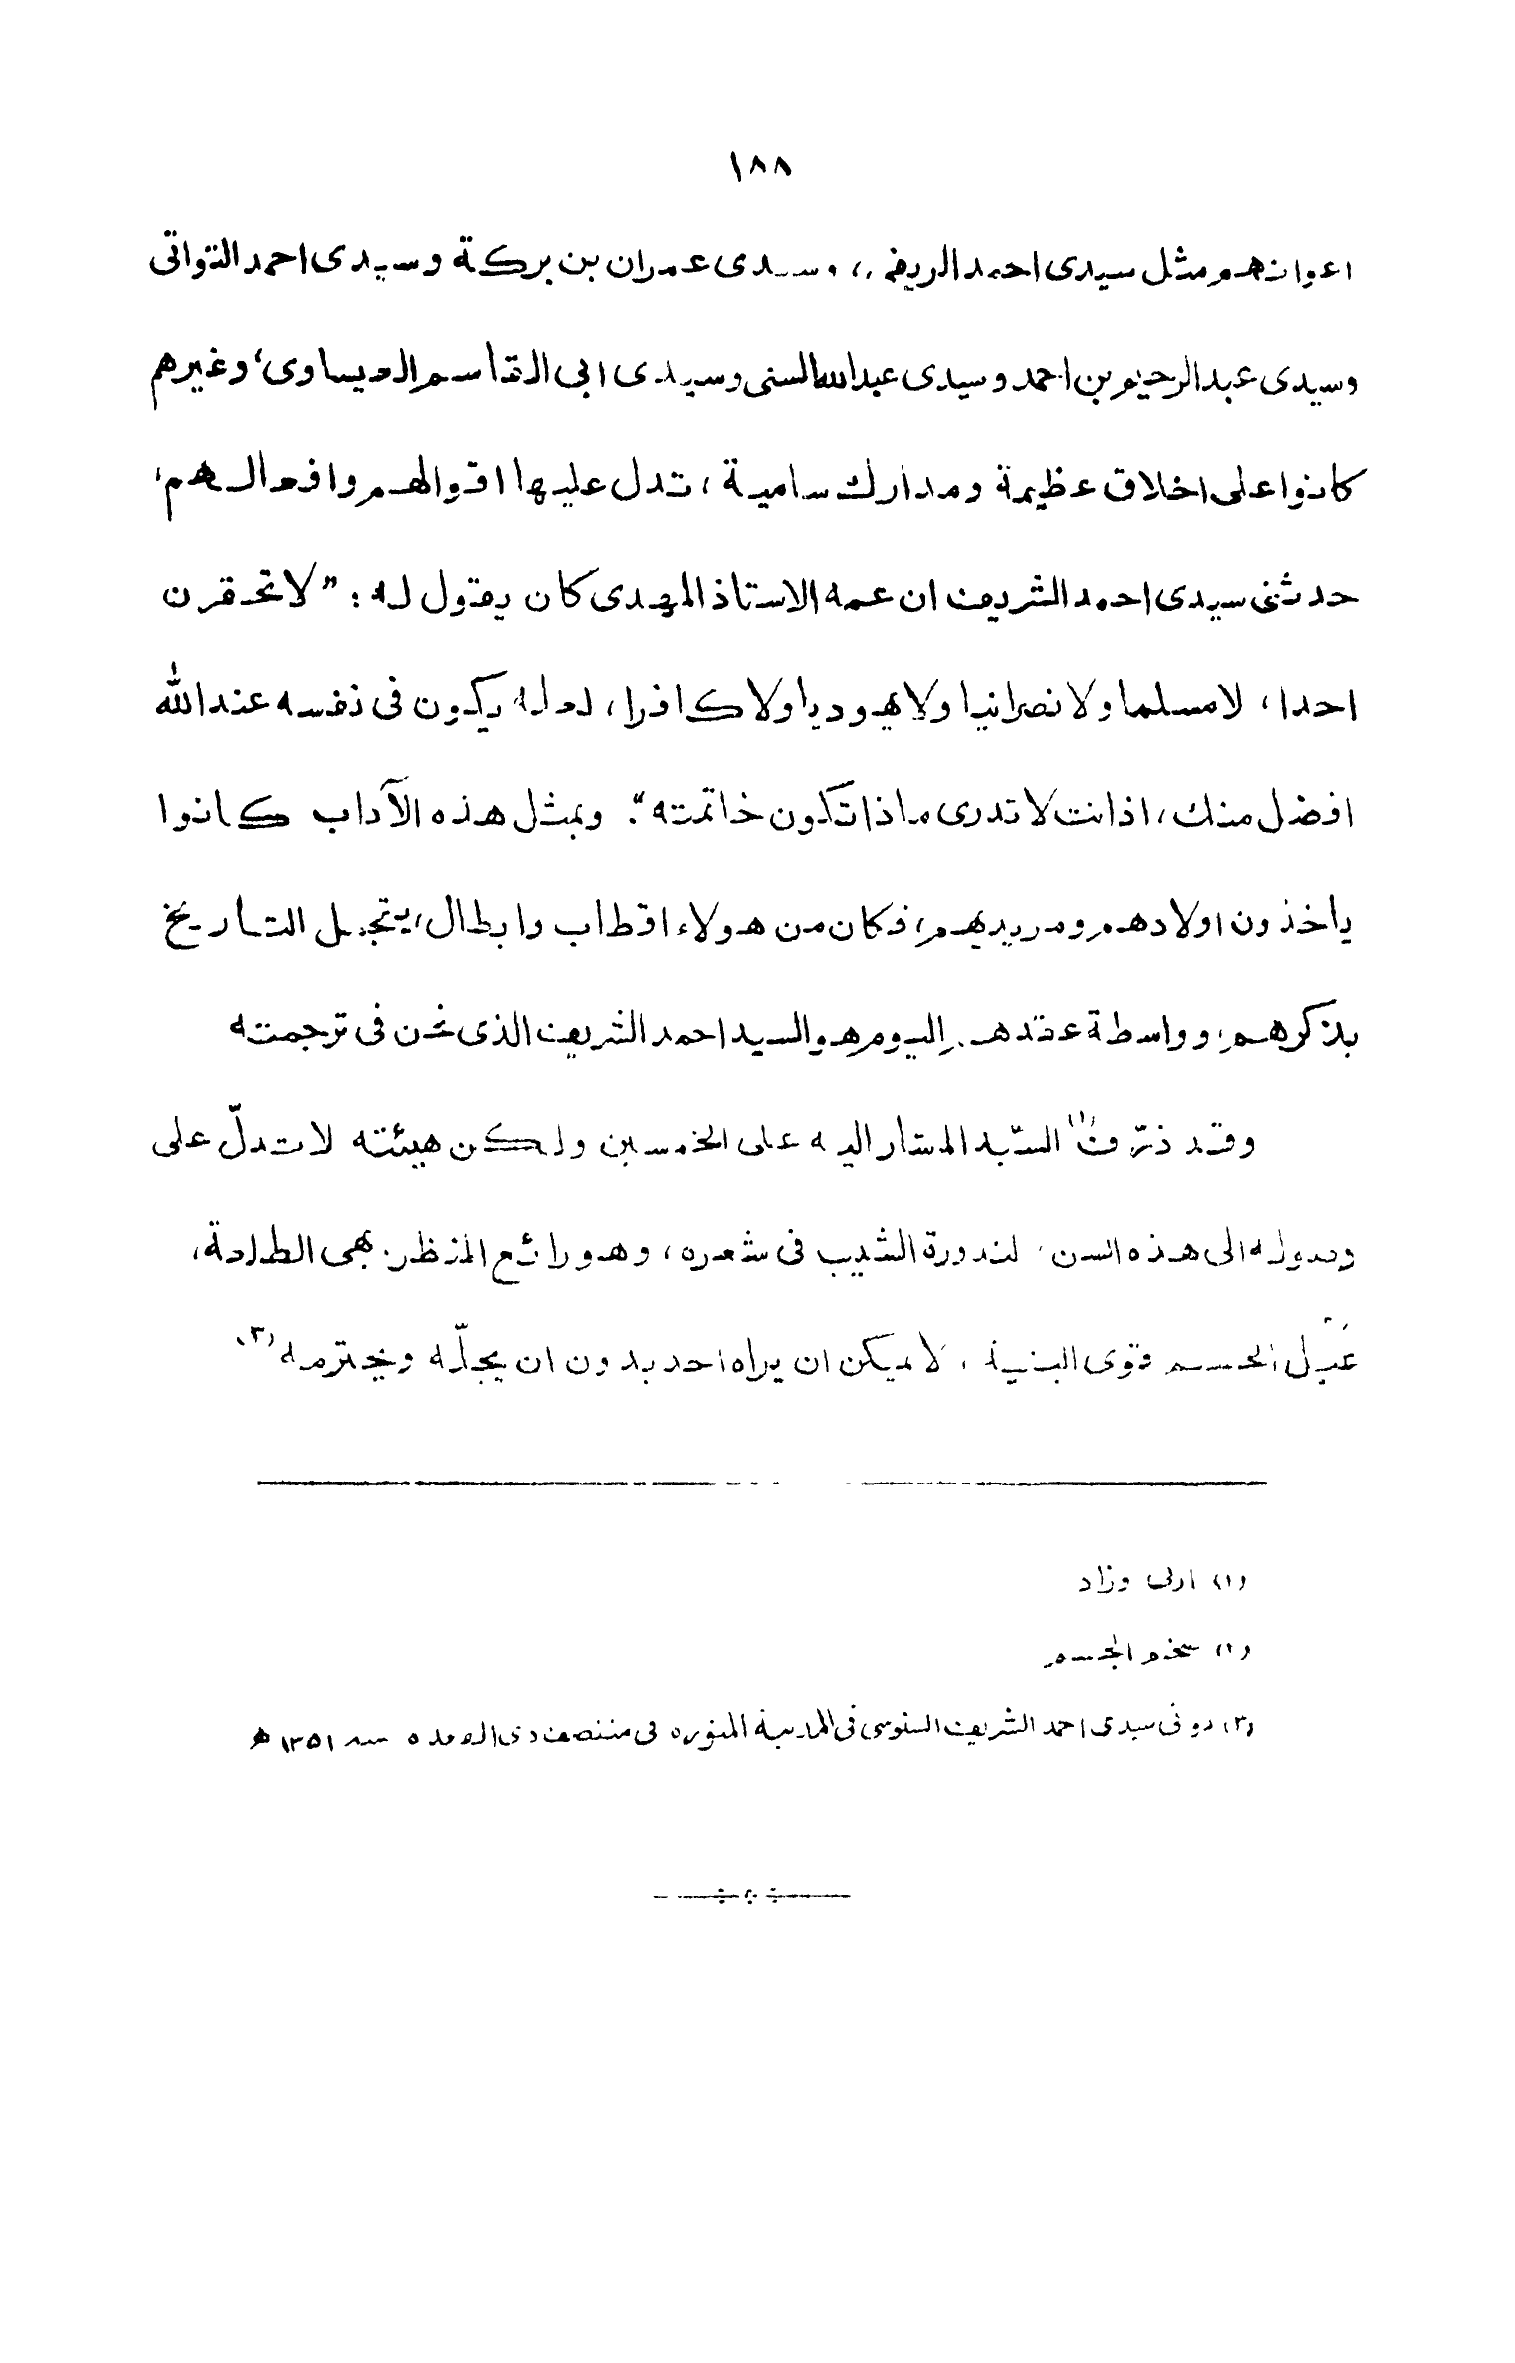 ١٨٨
اعوانهم مثل سيدى احمد الريفى، وسيدى عمران بن بركة وسيدى احمد التواتى
وسيدى عبد الرحيم بن احمد وسيدى عبدالله السنى وسيدى ابى القاسم العيساوى، وغيرهم
كانوا على اخلاق عظيمة ومدارك سامية، تدل عليها اقوالهم وافعالهم،
حدثنى سيدى احمد الشريف ان عمه الاستاذ المهدى كان يقول له: "لا تحقرن
احدا، لا مسلما ولا نصرانيا ولا يهوديا ولا كافرا، لعله يكون فى نفسه عند الله
افضل منك، اذ انت لا تدرى ماذا تكون خاتمته". وبمثل هذه الآداب كانوا
ياخذون اولادهم ومريديهم، فكان من هولاء اقطاب وابطال، يتجمل التاريخ
بذكرهم، وواسطة عقدهم اليوم هو السيد احمد الشريف الذى نحن فى ترجمته
وقد ذرّف(١) السّيد المشار اليه على الخمسين ولكن هيئته لا تدلّ على
وصوله الى هذه السن، لندورة الشيب فى شعره، وهو رائع المنظر، بهى الطلعة،
عَبْل الجسم قوى البنية، لا يمكن ان يراه احد بدون ان يجلّه ويحترمه(٣)
(١) اربى وزاد
(٢) ضخم الجسم
(٣) توفى سيدى احمد الشريف السنوسى فى المدينة المنوره فى منتصف ذى القعده سنه ١٣٥١ ﻫ